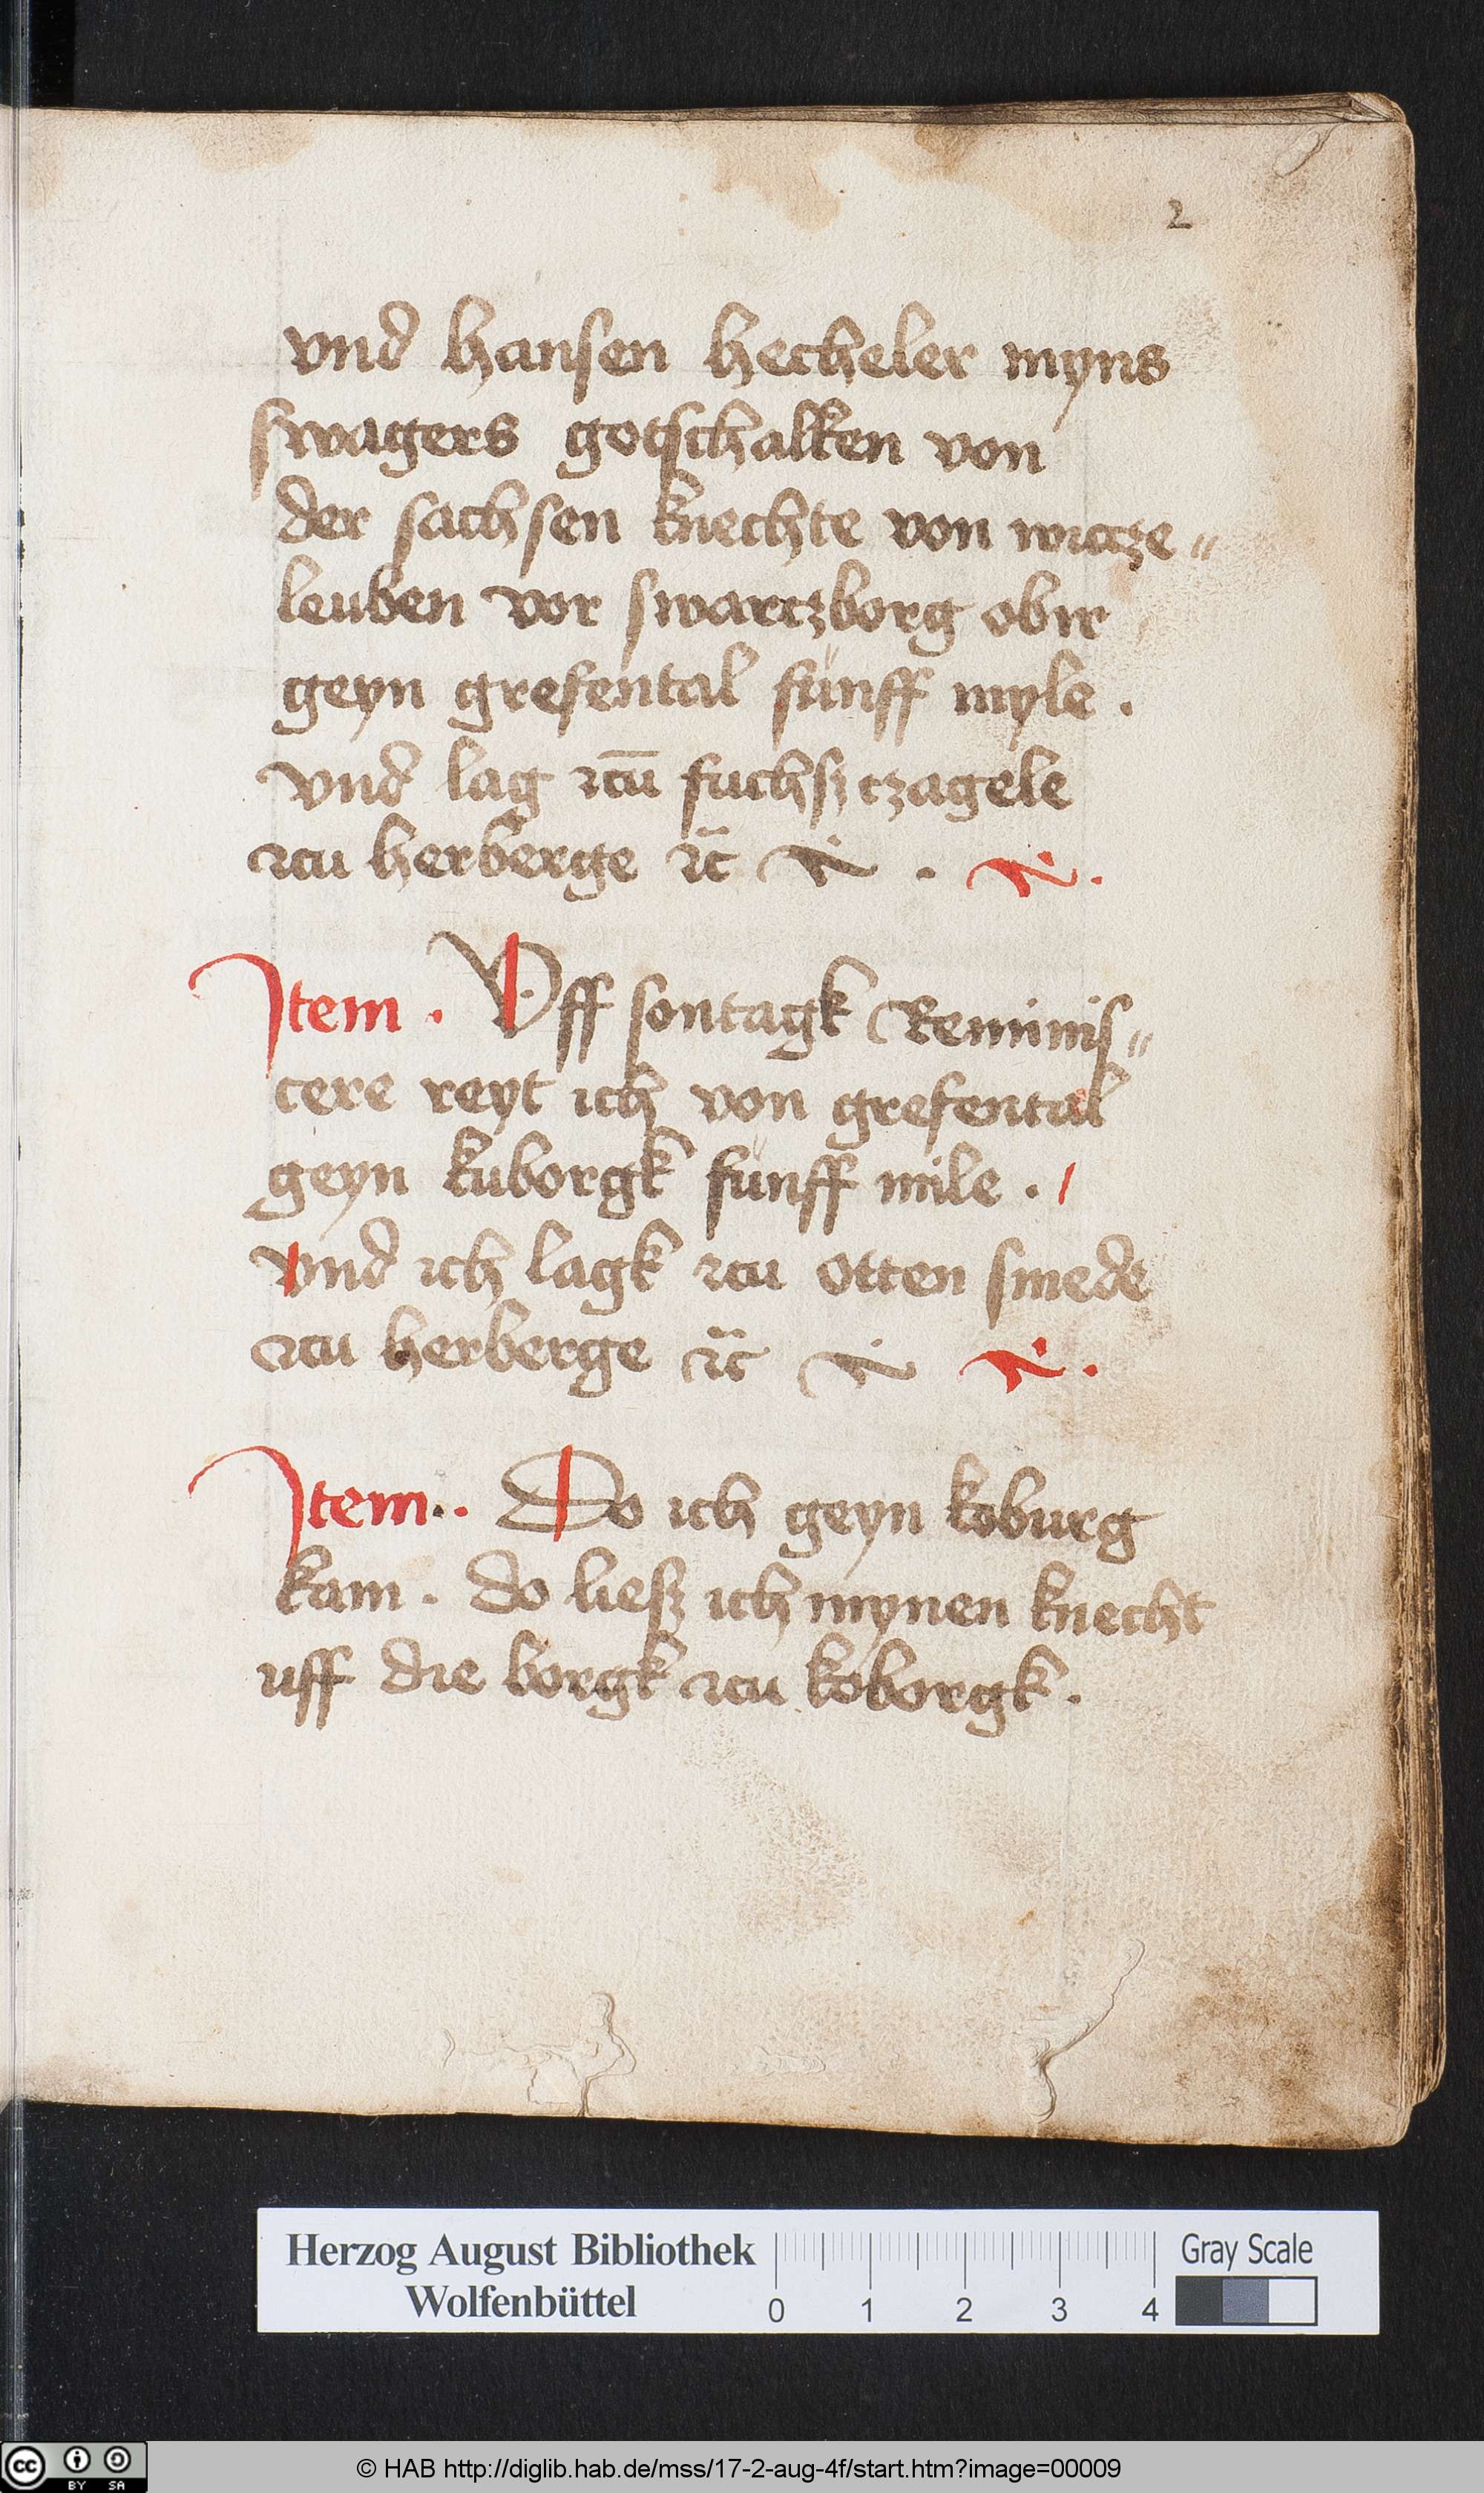 2
vnd hansen hecheler myns
swagers gotschalken von
der sachsen knechte von wicze〃
leuben vor swarczborg obir
geyn grefental fünff myle .
vnd lag zcū fuchsz czagele
zcu herberge
Item . Vff sontagk Reminis〃
cere reyt ich von grefental
geyn kuborgk fünff mile .
vnd ich lagk zcu otten smede
zcu herberge
Item . . Do ich geyn koburg
kam . do liesz ich mynen knecht
uff die borgk zcu koborgk .
Herzog August Bibliothek
Wolfenbüttel
0 1 2 3 4
Gray Scale
cc BY SA
© HAB http://diglib.hab.de/mss/17-2-aug-4f/start.htm?image=00009